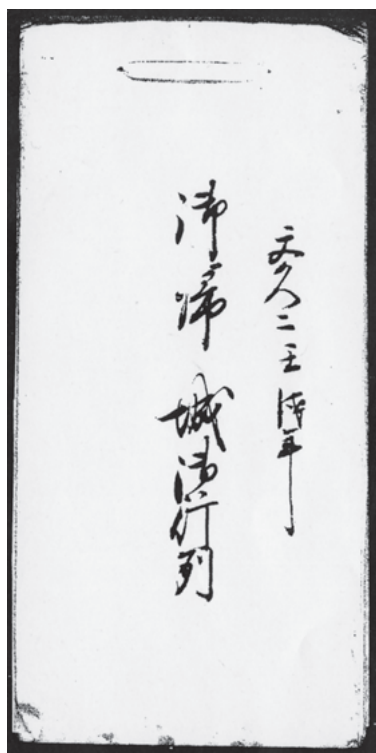 文久二壬戌年
御帰城御行列